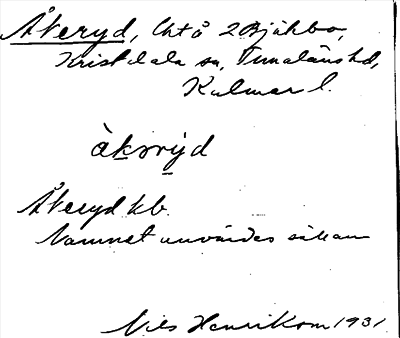 Åkeryd, lht å 2 Bjälebo,
Kristdala sn, Tunaläns hd,
Kalmar l.
àkərỳd
Åkeryd kb.
Namnet användes sällan
Nils Henrikson 1931